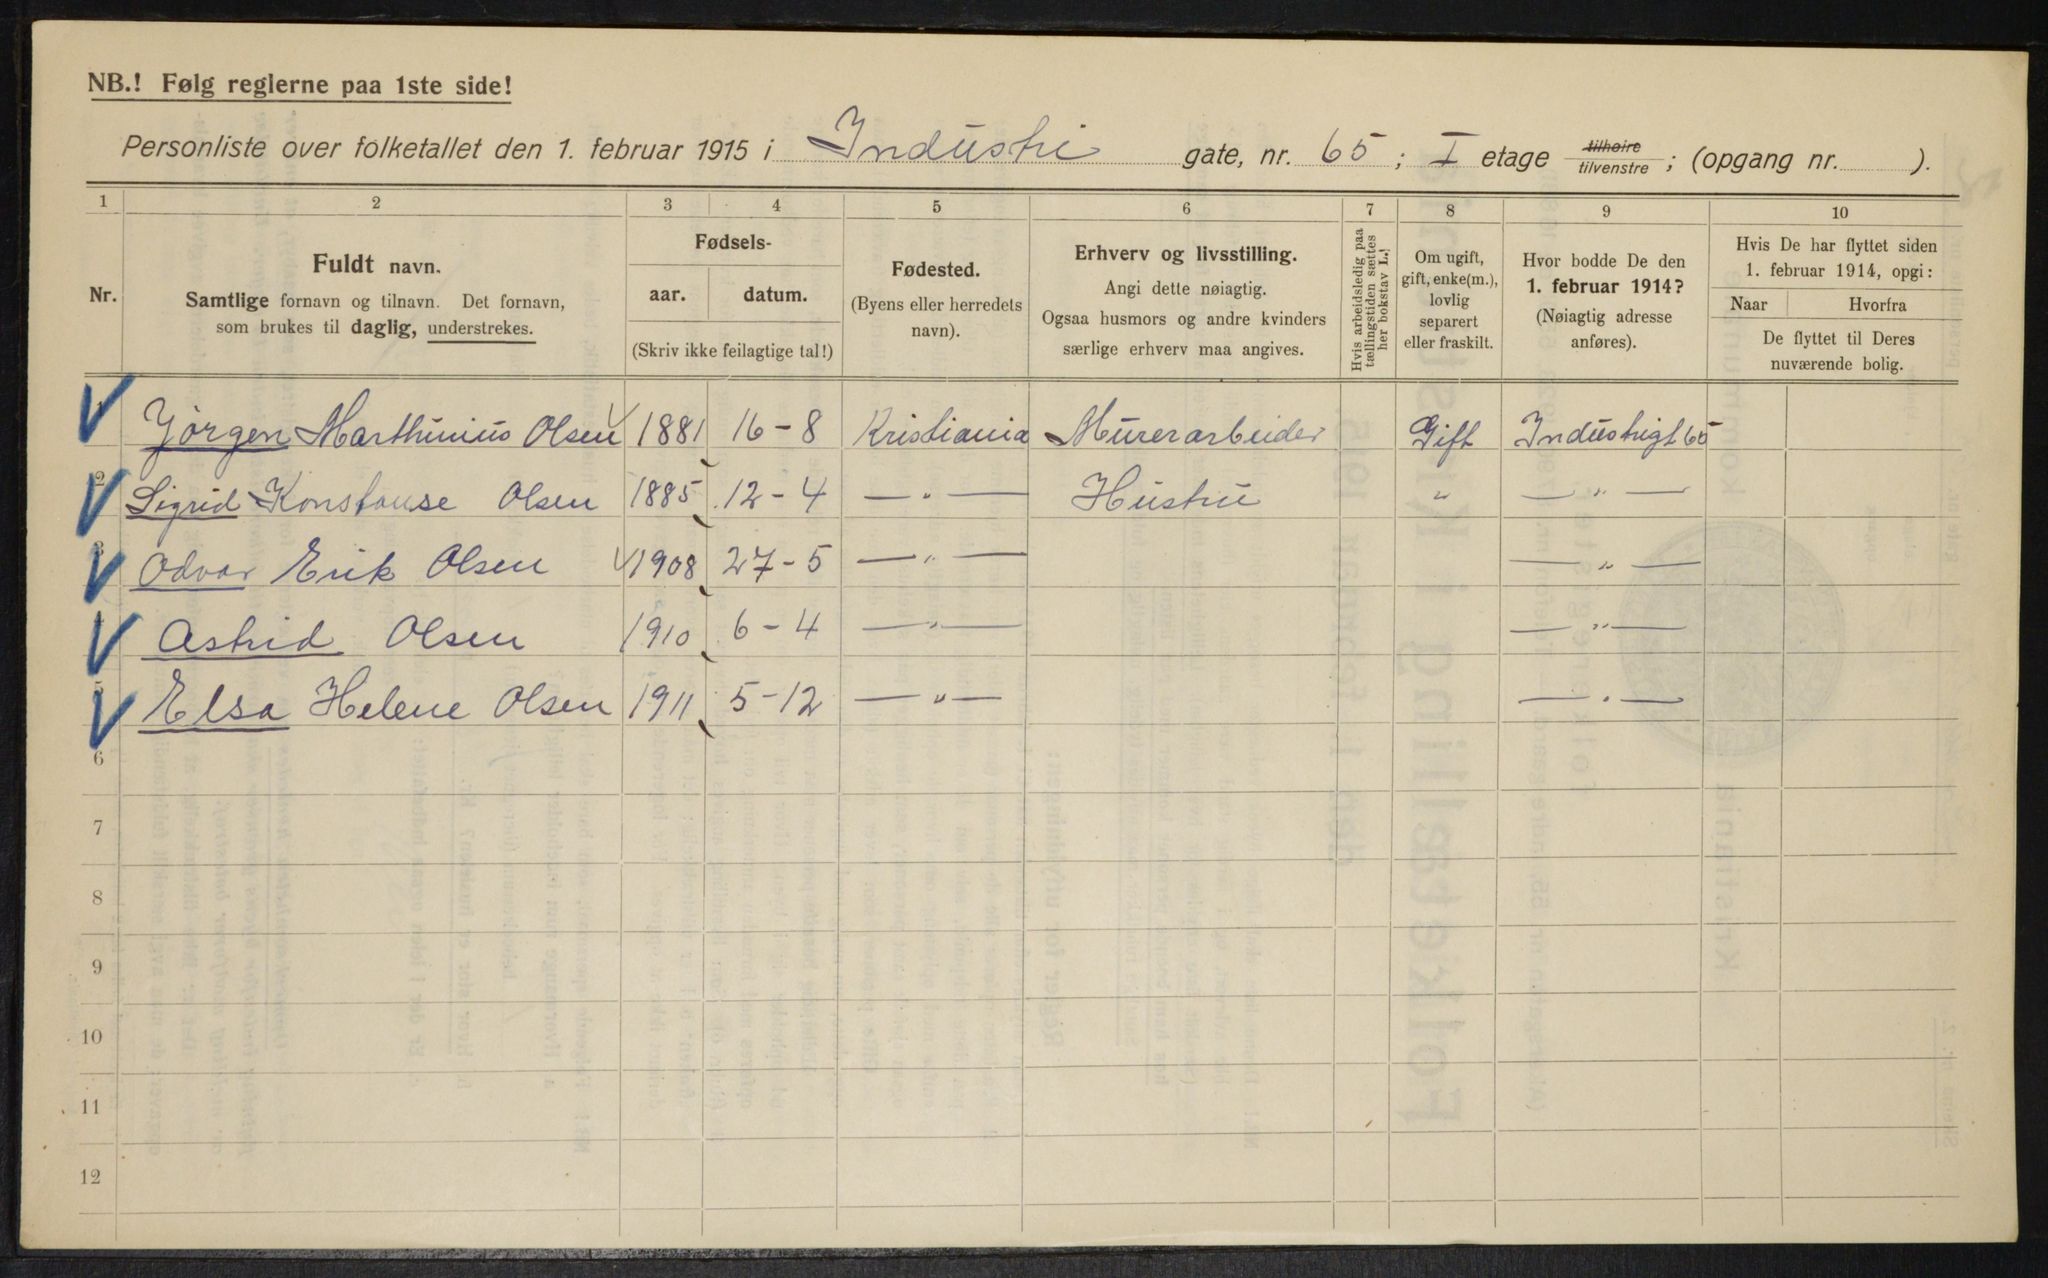 NB.! Følg reglerne paa 1ste side!
Personliste over folketallet den 1. februar 1915 i Industri gate, nr. 65 ; I etage tilhøire / tilvenstre ; (opgang nr. ).
1 2 3 4 5 6 7 8 9 10
Nr.
Fuldt navn.
Samtlige fornavn og tilnavn. Det fornavn,
som brukes til daglig, understrekes.
Fødsels-
aar. datum.
(Skriv ikke feilagtige tal!)
Fødested.
(Byens eller herredets
navn).
Erhverv og livsstilling.
Angi dette nøiagtig.
Ogsaa husmors og andre kvinders
særlige erhverv maa angives.
Hvis arbeidsledig paa
tællingstiden sættes
her bokstav L.!
Om ugift,
gift, enke(m.),
lovlig
separert
eller fraskilt.
Hvor bodde De den
1. februar 1914?
(Nøiagtig adresse
anføres).
Hvis De har flyttet siden
1. februar 1914, opgi:
Naar Hvorfra
De flyttet til Deres
nuværende bolig.
1 Jørgen Marthinius Olsen 1881 16-8 Kristiania Murerarbeider Gift Industrigt 65
2 Sigrid Konstanse Olsen 1885 12-4 — " — Hustru " — " —
3 Odvar Erik Olsen 1908 27-5 — " — — " —
4 Astrid Olsen 1910 6-4 — " — — " —
5 Elsa Helene Olsen 1911 5-12 — " — — " —
6
7
8
9
10
11
12